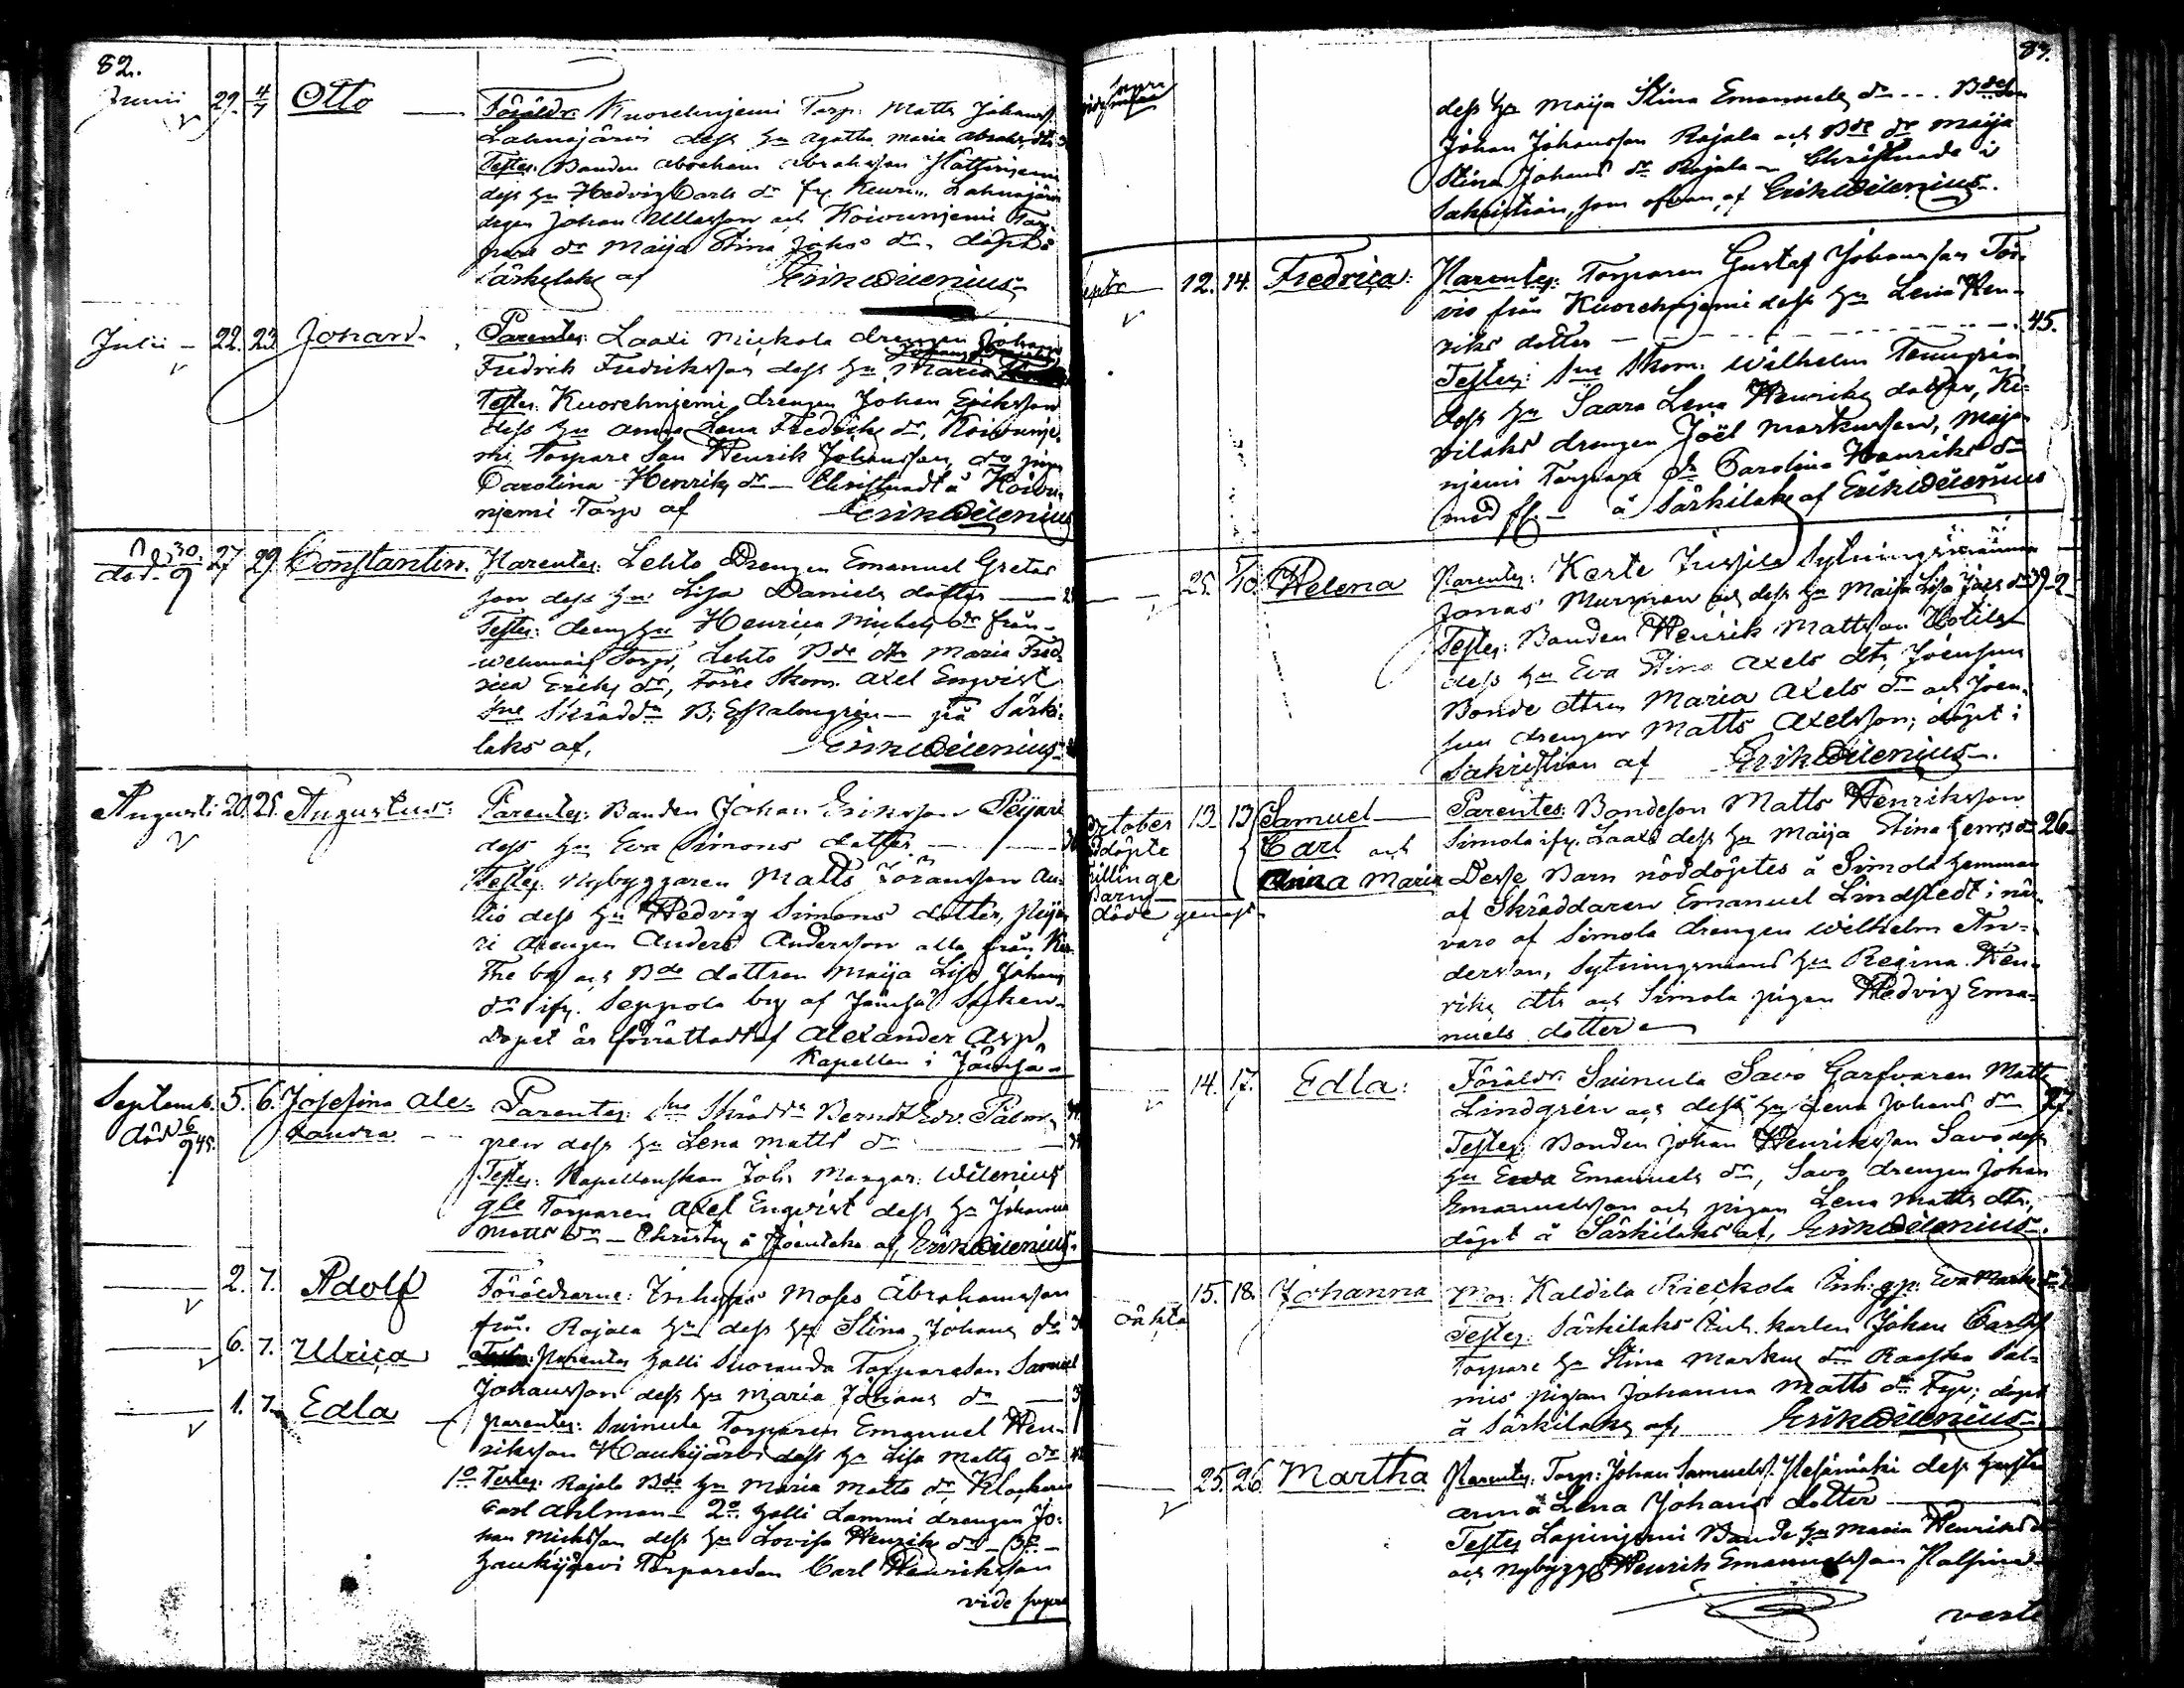 82.
Junii 29. 4/7 Otto — Föräldr: Kuorehnjemi Torp: Matts Johanss.
Lahnajärvi dess hu Agatha Maria Abrahs dtr
Testes: Bonden Abraham Abrahsson
dess hu Hedvig Carls dr
drgen Johan Ullasson och Koivunjemi Tor-
pare dr Maija Stina Johs dr. döpt å
Särkilaks af Erik Wilenius
Julii — 22. 23. Johan. Parentes: Laaxi Mickola drengen Johan
Fredrik Fredriksson dess hu Maria
Testes: Kuorehnjemi drengen Johan Eriksson
dess hu Anna Lena Fredriks dr, Koivunje-
mi Torpare son Henrik Johansson, do pigan
Carolina Henriks dr — Christnadt å Koivu-
njemi Torp af Erik Wilenius
död 30/9 27 29 Constantin. Parentes: Lehto Drengen Emanuel Gretas
son dess hu Lisa Daniels dotter —
Testes: dreng hu Henrica Michels dr från
Torp, Lehto Bde dtr Maria Fred-
rica Eriks dr, Förre Skom. Axel Enqvist
Sne Skrädd B: E. Palmgrén — på Särki-
laks af. Erik Wilenius
Augusti 20. 25. Augustus: Parentes: Bonden Johan Eriksson Peijari
dess hu Eva Simons dotter —
Testes: Nybyggaren Matts Göransson Au-
tio dess hu Hedvig Simons dotter, Peija-
ri drengen Anders Andersson alla från
by och Bde dottren Maija Lisa Johans
dr ifr. Seppola by af Jämsä Socken
dopet är förrättadt af Alexander Asp,
Kapellan i Jämsä —
Septemb. 5. 6. Josefina Ale- Parentes: Sne Skrädd Berndt Edv. Palm-
död 6/9 45. xandra — gren dess hu Lena Matts dr
Testes: Kapellanskan Joh: Margar: Wilenius
gle Torparen Axel Enqvist dess hu Johanna
Matts dr — Christn. å af, Erik Wilenius
— 2. 7. Adolf Föräldrarne: Inhyses Moses Abrahamsson
från Rajala dess hu Stina Johans dr
— 6. 7. Ulrica Parentes Halli Suoranda Torpareson Samuel
Johansson dess hu Maria Johans dr —
— 1. 7. Edla — parentes: Suinula Torparen Emanuel Hen-
riksson Haukijärvi dess hu Lisa Matts dr
1o Testes: Rajala Bde hu Maria Matts dr, Klockaren
Carl Ahlman — 2o. Halli Lammi drengen Jo-
han Mickson dess hu Lovisa Henriks dr — 3o —
Haukijärvi Torpareson Carl Henriksson
vide supra
83.
dess hu Maija Stina Emanuels dr --- Bdes
Johan Johansson Rajala och Bde dr Maija
Stina Johans dr Rajala — Christnade i
Sakristian, som ofvan, af Erik Wilenius.
12. 14. Fredrica: Parentes: Torparen Gustaf Johansson Tör-
viö från Kuorehnjemi dess hu Lena Hen-
riks dotter — 45.
Testes: Sne Skom. Wilhelm Tenngrén
dess hu Saara Lena Henriks dotter, Ki-
vilaks drengen Joël Markusson, Maja-
njemi Torpare dr Carolina Henriks dr
med fl. — å Särkilaks af Erik Wilenius
25. 5/10. Helena Parentes: Kerte Jussila Sytningsmannen
Jonas Murman och dess hu Maija Lisa Jöns dr 39-2
Testes: Bonden Henrik Mattsson Uotila
dess hu Eva Stina Axels dtr, Joensuu
Bonde dtren Maria Axels dr och Joen-
suu drengen Matts Axelsson; döpt i
Sakristian af Erik Wilenius.
October 13. 13 Samuel — Parentes: Bondeson Matts Henriksson
nöddöpte Carl och Simola ifr. Laaxo dess hu Maija Stina Henrs dr 26.
Trillinge Anna Maria Desse Barn nöddöptes å Simola Hemman
Barn — af Skräddaren Emanuel Lindstedt i när-
döde genast varo af Simola drengen Wilhelm An-
dersson, Sytningsmans hu Regina Hen-
riks dtr och Simola pigan Hedvig Ema-
nuels dotter
— 14. 17. Edla: Föräldr: Suinula Savo Garfvaren Matts
Lindgrén och dess hu Lena Johans dr 27.
Testes: Bonden Johan Henriksson Savo dess
hu Ewa Emanuels dr, Savo drengen Johan
Emanuelsson och pigan Lena Matts dtr,
döpt å Särkilaks af, Erik Wilenius.
oäkta 15. 18. Johanna Mor: Kaldila Rieckola Inh. gp: Eva
Testes: Särkilaks Inh. karlen Johan Carlss
Torpare hu Stina Markus dr Pal-
mis pigan Johanna Matts dr döpt
å Särkilaks af, Erik Wilenius
— 25. 26. Martha Parentes: Torp: Johan Samuelss. dess hustru
Anna Lena Johans dotter —
Testes Lapinnjemi Bonde hu Maria Henriks dr
och Nybygg. Henrik Emanuelsson
verte